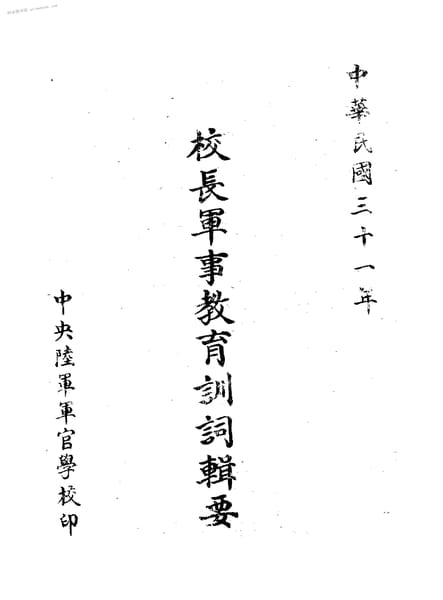 中華民國三十一年
校長軍事教育訓詞輯要
中央陸軍軍官學校印